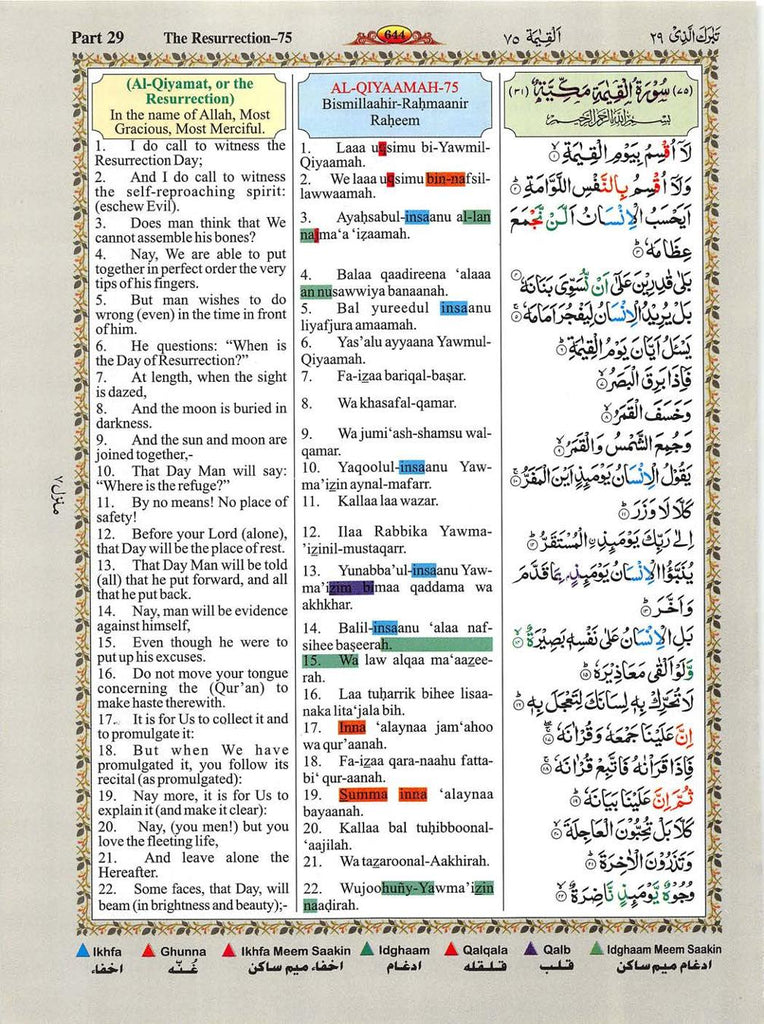 Part 29
The Resurrection–75
644
٧٥ اَلْقِيٰمَة
تَبٰرَكَ الَّذِىْ ٢٩
(Al-Qiyamat, or the
Resurrection)
In the name of Allah, Most
Gracious, Most Merciful.
1. I do call to witness the
Resurrection Day;
2. And I do call to witness
the self-reproaching spirit:
(eschew Evil).
3. Does man think that We
cannot assemble his bones?
4. Nay, We are able to put
together in perfect order the very
tips of his fingers.
5. But man wishes to do
wrong (even) in the time in front
of him.
6. He questions: “When is
the Day of Resurrection?”
7. At length, when the sight
is dazed,
8. And the moon is buried in
darkness.
9. And the sun and moon are
joined together,-
10. That Day Man will say:
“Where is the refuge?”
11. By no means! No place of
safety!
12. Before your Lord (alone),
that Day will be the place of rest.
13. That Day Man will be told
(all) that he put forward, and all
that he put back.
14. Nay, man will be evidence
against himself,
15. Even though he were to
put up his excuses.
16. Do not move your tongue
concerning the (Qur’an) to
make haste therewith.
17. It is for Us to collect it and
to promulgate it:
18. But when We have
promulgated it, you follow its
recital (as promulgated):
19. Nay more, it is for Us to
explain it (and make it clear):
20. Nay, (you men!) but you
love the fleeting life,
21. And leave alone the
Hereafter.
22. Some faces, that Day, will
beam (in brightness and beauty);-
AL-QIYAAMAH-75
Bismillaahir-Raḥmaanir
Raḥeem
1. Laaa uqsimu bi-Yawmil-
Qiyaamah.
2. We laaa uqsimu bin-nafsil-
lawwaamah.
3. Ayaḥsabul-insaanu al-lan
najma‘a ‘iẓaamah.
4. Balaa qaadireena ‘alaaa
an nusawwiya banaanah.
5. Bal yureedul insaanu
liyafjura amaamah.
6. Yas’alu ayyaana Yawmul-
Qiyaamah.
7. Fa-izaa bariqal-baṣar.
8. Wa khasafal-qamar.
9. Wa jumi‘ash-shamsu wal-
qamar.
10. Yaqoolul-insaanu Yaw-
ma’izin aynal-mafarr.
11. Kallaa laa wazar.
12. Ilaa Rabbika Yawma-
’izinil-mustaqarr.
13. Yunabba’ul-insaanu Yaw-
ma’izim bimaa qaddama wa
akhkhar.
14. Balil-insaanu ‘alaa naf-
sihee baṣeerah.
15. Wa law alqaa ma‘aazee-
rah.
16. Laa tuḥarrik bihee lisaa-
naka lita‘jala bih.
17. Inna ‘alaynaa jam‘ahoo
wa qur’aanah.
18. Fa-izaa qara-naahu fatta-
bi‘ qur-aanah.
19. Summa inna ‘alaynaa
bayaanah.
20. Kallaa bal tuḥibboonal-
‘aajilah.
21. Wa tazaroonal-Aakhirah.
22. Wujoohuñy-Yawma’izin
naaḍirah.
(٧٥) سُوْرَةُ الْقِيٰمَةِ مَكِّيَّةٌ (٣١)
بِسْمِ اللّٰهِ الرَّحْمٰنِ الرَّحِيْمِ
لَاۤ اُقْسِمُ بِيَوْمِ الْقِيٰمَةِ ۙ‏١
وَلَاۤ اُقْسِمُ بِالنَّفْسِ اللَّوَّامَةِ ؕ‏٢
اَيَحْسَبُ الْاِنْسَانُ اَلَّنْ نَّجْمَعَ
عِظَامَهٗ ؕ‏٣
بَلٰى قٰدِرِيْنَ عَلٰٓى اَنْ نُّسَوِّىَ بَنَانَهٗ ‏٤
بَلْ يُرِيْدُ الْاِنْسَانُ لِيَفْجُرَ اَمَامَهٗ ۚ‏٥
يَسْـَٔلُ اَيَّانَ يَوْمُ الْقِيٰمَةِ ؕ‏٦
فَاِذَا بَرِقَ الْبَصَرُ ۙ‏٧
وَخَسَفَ الْقَمَرُ ۙ‏٨
وَجُمِعَ الشَّمْسُ وَالْقَمَرُ ۙ‏٩
يَقُوْلُ الْاِنْسَانُ يَوْمَىِٕذٍ اَيْنَ الْمَفَرُّ ۚ‏١٠
كَلَّا لَا وَزَرَ ؕ‏١١
اِلٰى رَبِّكَ يَوْمَىِٕذِ اۨلْمُسْتَقَرُّ ؕ‏١٢
يُنَبَّؤُا الْاِنْسَانُ يَوْمَىِٕذٍۭ بِمَا قَدَّمَ
وَاَخَّرَ ؕ‏١٣
بَلِ الْاِنْسَانُ عَلٰى نَفْسِهٖ بَصِيْرَةٌ ۙ‏١٤
وَّلَوْ اَلْقٰى مَعَاذِيْرَهٗ ؕ‏١٥
لَا تُحَرِّكْ بِهٖ لِسَانَكَ لِتَعْجَلَ بِهٖ ؕ‏١٦
اِنَّ عَلَيْنَا جَمْعَهٗ وَقُرْاٰنَهٗ ۚ‏١٧
فَاِذَا قَرَاْنٰهُ فَاتَّبِعْ قُرْاٰنَهٗ ۚ‏١٨
ثُمَّ اِنَّ عَلَيْنَا بَيَانَهٗ ؕ‏١٩
كَلَّا بَلْ تُحِبُّوْنَ الْعَاجِلَةَ ۙ‏٢٠
وَتَذَرُوْنَ الْاٰخِرَةَ ؕ‏٢١
وُجُوْهٌ يَّوْمَىِٕذٍ نَّاضِرَةٌ ۙ‏٢٢
منزل ٧
Ikhfa
Ghunna
Ikhfa Meem Saakin
Idghaam
Qalqala
Qalb
Idghaam Meem Saakin
اخفاء
غُنّه
اخفاء ميم ساكن
ادغام
قلقله
قلب
ادغام ميم ساكن